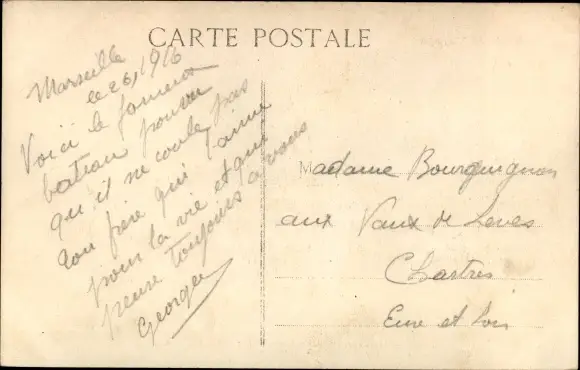 CARTE POSTALE
Marseille
le 26, 1916
Voici le fameux
bateau pourvu
qu'il ne coule pas
ton frère qui t'aime
pour la vie et qui
pense toujours a vous
Georges
Madame Bourguignon
aux Vaux de Leves
Chartres
Eure et Loir